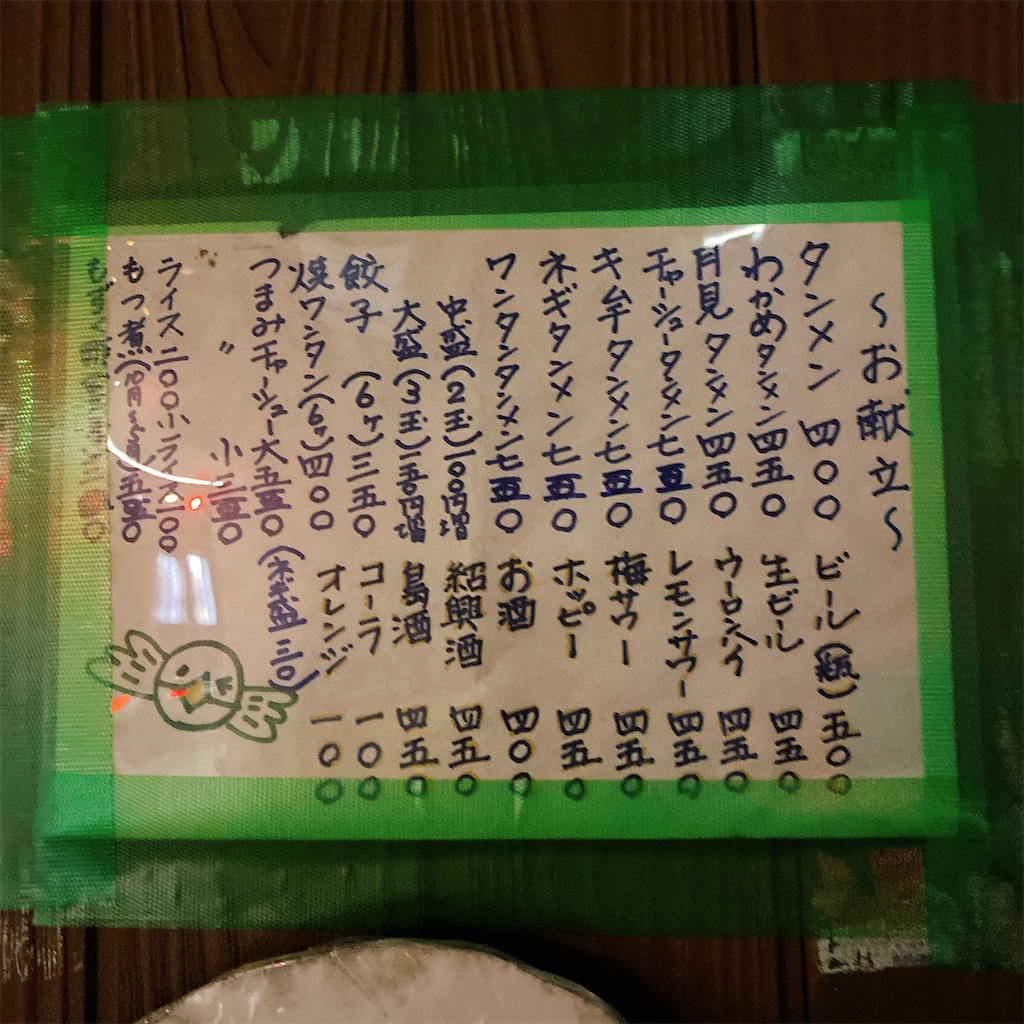 〜お献立〜
タンメン 四〇〇
わかめタンメン 四五〇
月見タンメン 四五〇
チャーシュータンメン 七五〇
キムチタンメン 七五〇
ネギタンメン 七五〇
ワンタンタンメン 七五〇
中盛(2玉)一〇〇円増
大盛(3玉)円増
餃子(6ヶ)三五〇
焼ワンタン(6ヶ)四〇〇
つまみチャーシュー大五五〇
〃 小三五〇
(ネギ盛 三〇)
ライス二〇〇小ライス一〇〇
もつ煮
ビール(瓶)五〇〇
生ビール 四五〇
ウーロンハイ 四五〇
レモンサワー 四五〇
梅サワー 四五〇
ホッピー 四五〇
お酒 四〇〇
紹興酒 四五〇
島酒 四五〇
コーラ 一〇〇
オレンジ 一〇〇